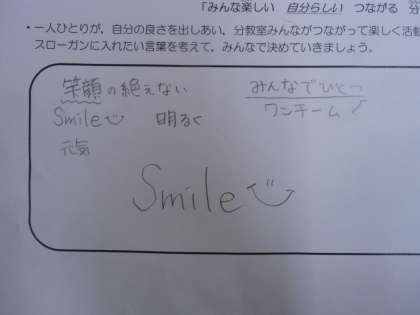 「みんな楽しい 自分らしい つながる 分
・一人ひとりが，自分の良さを出しあい，分教室みんながつながって楽しく活動
スローガンに入れたい言葉を考えて，みんなで決めていきましょう。
笑顔の絶えない
Smile
明るく
元気
みんなでひとつ
ワンチーム！
Smile